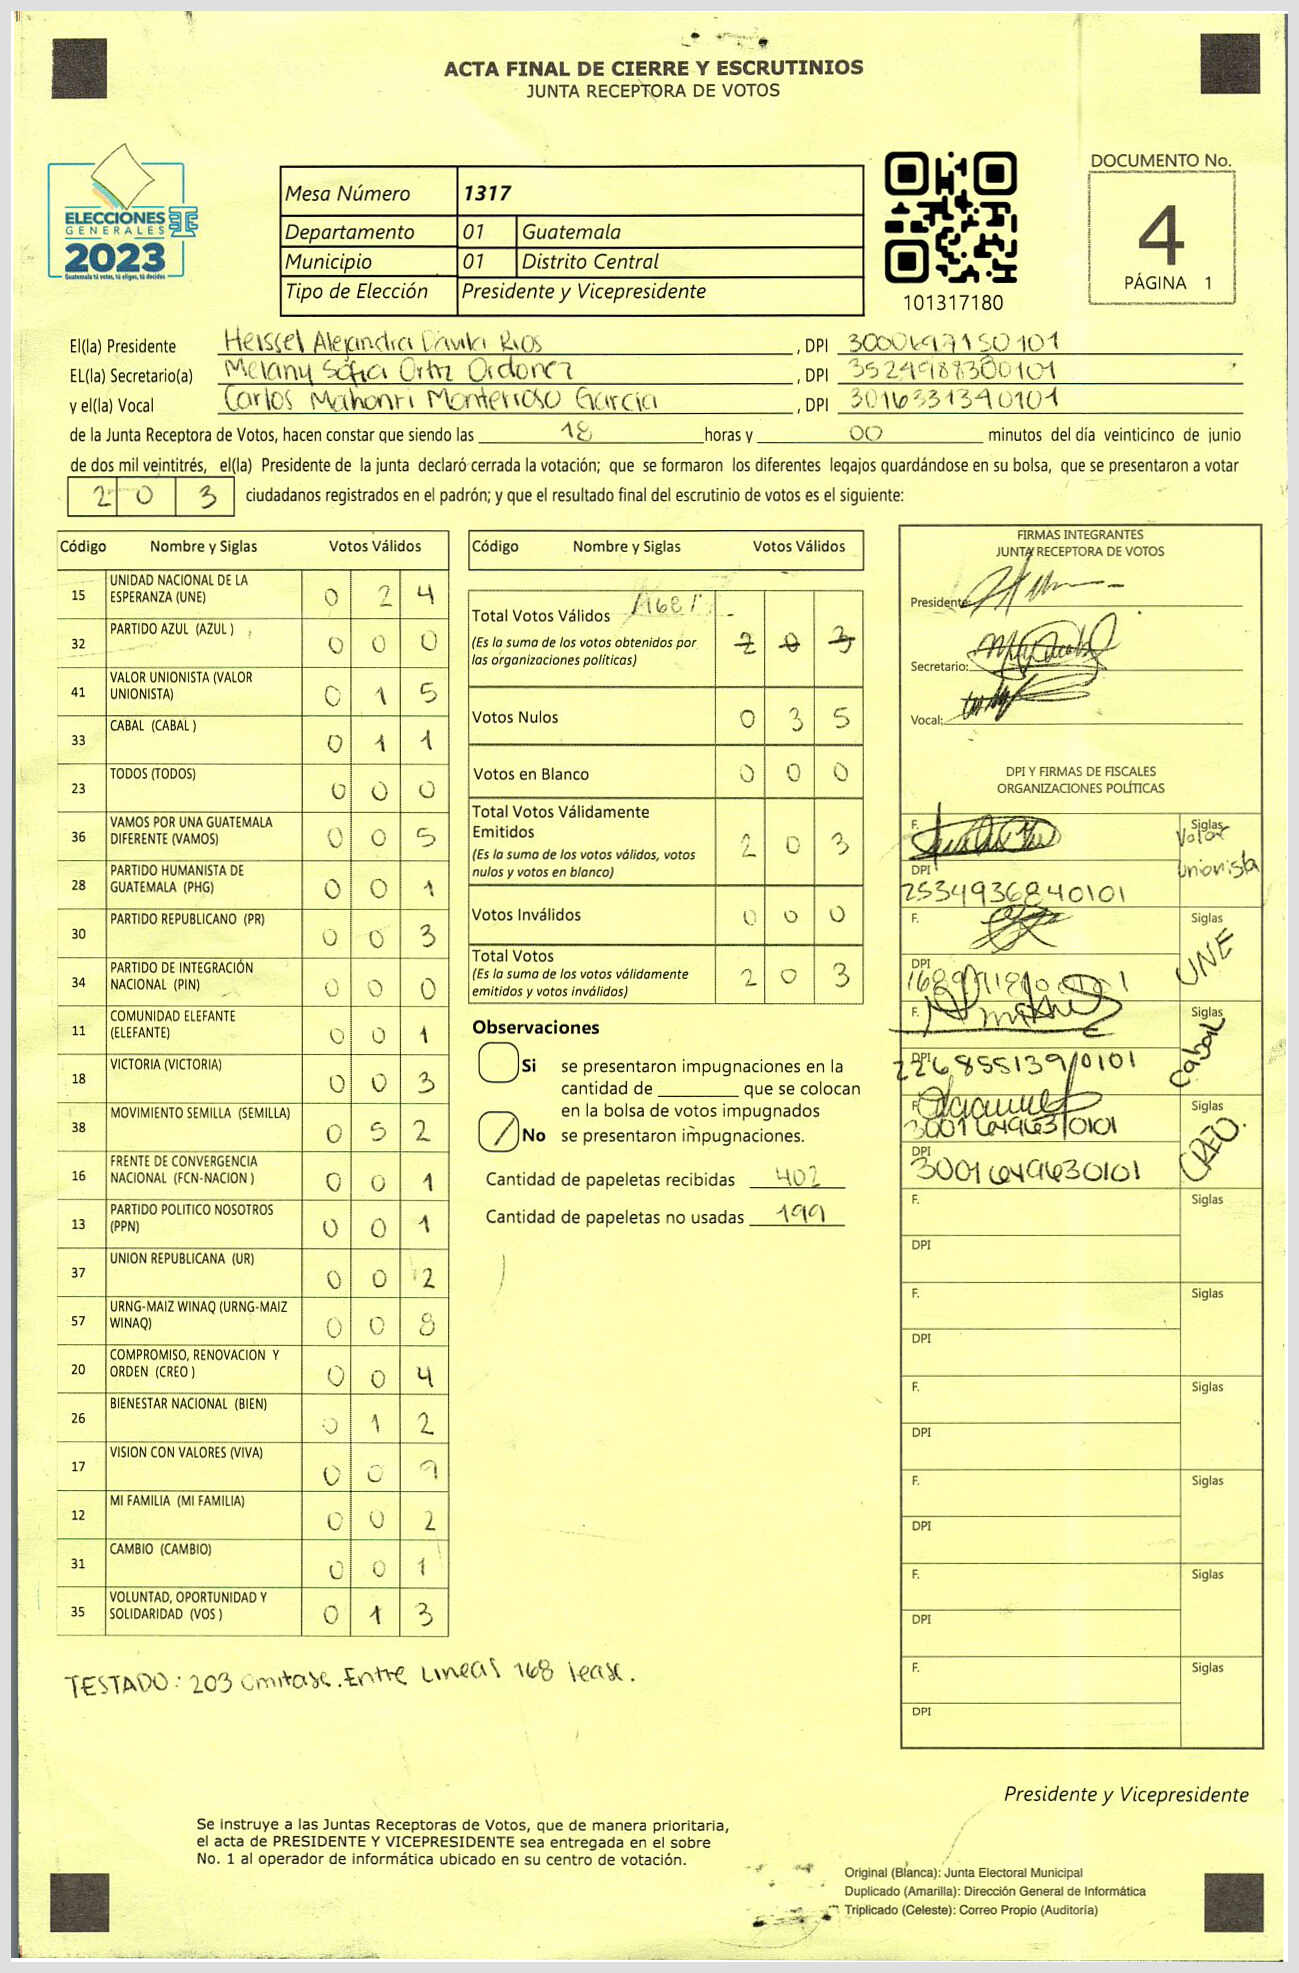 ACTA FINAL DE CIERRE Y ESCRUTINIOS
JUNTA RECEPTORA DE VOTOS
ELECCIONES
GENERALES
2023
Guatemala tú votas, tú eliges, tú decides
Mesa Número 1317
Departamento 01 Guatemala
Municipio 01 Distrito Central
Tipo de Elección Presidente y Vicepresidente
101317180
DOCUMENTO No.
4
PÁGINA 1
El(la) Presidente Heissel Alejandra Davila Rios, DPI 3000697150101
EL(la) Secretario(a) Melany Sofia Ortiz Ordoñez, DPI 3524988300101
y el(la) Vocal Carlos Mahonri Monterroso Garcia, DPI 3016331390101
de la Junta Receptora de Votos, hacen constar que siendo las 18 horas y 00 minutos del día veinticinco de junio
de dos mil veintitrés, el(la) Presidente de la junta declaró cerrada la votación; que se formaron los diferentes legajos guardándose en su bolsa, que se presentaron a votar
203 ciudadanos registrados en el padrón; y que el resultado final del escrutinio de votos es el siguiente:
Código Nombre y Siglas Votos Válidos
15 UNIDAD NACIONAL DE LA ESPERANZA (UNE) 0 2 4
32 PARTIDO AZUL (AZUL ) 0 0 0
41 VALOR UNIONISTA (VALOR UNIONISTA) 0 1 5
33 CABAL (CABAL ) 0 1 1
23 TODOS (TODOS) 0 0 0
36 VAMOS POR UNA GUATEMALA DIFERENTE (VAMOS) 0 0 5
28 PARTIDO HUMANISTA DE GUATEMALA (PHG) 0 0 1
30 PARTIDO REPUBLICANO (PR) 0 0 3
34 PARTIDO DE INTEGRACIÓN NACIONAL (PIN) 0 0 0
11 COMUNIDAD ELEFANTE (ELEFANTE) 0 0 1
18 VICTORIA (VICTORIA) 0 0 3
38 MOVIMIENTO SEMILLA (SEMILLA) 0 5 2
16 FRENTE DE CONVERGENCIA NACIONAL (FCN-NACION ) 0 0 1
13 PARTIDO POLITICO NOSOTROS (PPN) 0 0 1
37 UNION REPUBLICANA (UR) 0 0 2
57 URNG-MAIZ WINAQ (URNG-MAIZ WINAQ) 0 0 8
20 COMPROMISO, RENOVACION Y ORDEN (CREO ) 0 0 4
26 BIENESTAR NACIONAL (BIEN) 0 1 2
17 VISION CON VALORES (VIVA) 0 0 9
12 MI FAMILIA (MI FAMILIA) 0 0 2
31 CAMBIO (CAMBIO) 0 0 1
35 VOLUNTAD, OPORTUNIDAD Y SOLIDARIDAD (VOS ) 0 1 3
TESTADO: 203 omitase. Entre lineas 168 lease.
Código Nombre y Siglas Votos Válidos
Total Votos Válidos 168 2 0 3
(Es la suma de los votos obtenidos por
las organizaciones políticas)
Votos Nulos 0 3 5
Votos en Blanco 0 0 0
Total Votos Válidamente
Emitidos 2 0 3
(Es la suma de los votos válidos, votos
nulos y votos en blanco)
Votos Inválidos 0 0 0
Total Votos 2 0 3
(Es la suma de los votos válidamente
emitidos y votos inválidos)
Observaciones
Si se presentaron impugnaciones en la
cantidad de ________ que se colocan
en la bolsa de votos impugnados
No se presentaron impugnaciones.
Cantidad de papeletas recibidas 402
Cantidad de papeletas no usadas 199
FIRMAS INTEGRANTES
JUNTA RECEPTORA DE VOTOS
Presidente:
Secretario:
Vocal:
DPI Y FIRMAS DE FISCALES
ORGANIZACIONES POLÍTICAS
F. Siglas Valor Unionista
DPI 2534936840101
F. Siglas UNE
DPI
F. Siglas Cabal
DPI 2268551390101
F. 3001649630101 Siglas CREO.
DPI 3001649630101
F. Siglas
DPI
F. Siglas
DPI
F. Siglas
DPI
F. Siglas
DPI
F. Siglas
DPI
F. Siglas
DPI
Presidente y Vicepresidente
Se instruye a las Juntas Receptoras de Votos, que de manera prioritaria,
el acta de PRESIDENTE Y VICEPRESIDENTE sea entregada en el sobre
No. 1 al operador de informática ubicado en su centro de votación.
Original (Blanca): Junta Electoral Municipal
Duplicado (Amarilla): Dirección General de Informática
Triplicado (Celeste): Correo Propio (Auditoría)